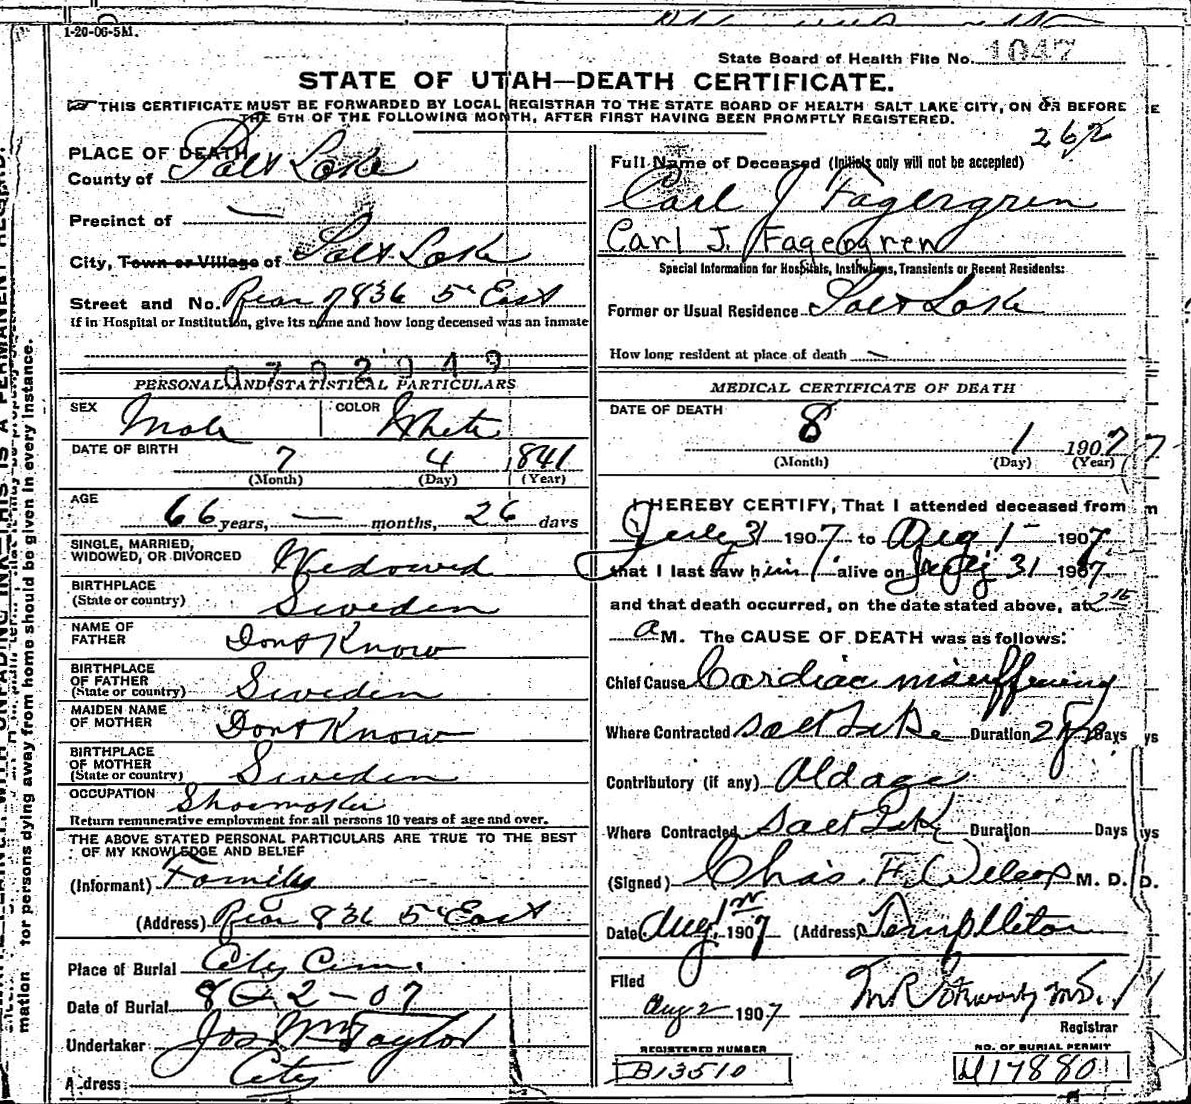 1-20-06-5M.
State Board of Health File No. 1047
STATE OF UTAH—DEATH CERTIFICATE.
THIS CERTIFICATE MUST BE FORWARDED BY LOCAL REGISTRAR TO THE STATE BOARD OF HEALTH SALT LAKE CITY, ON OR BEFORE
THE 5TH OF THE FOLLOWING MONTH, AFTER FIRST HAVING BEEN PROMPTLY REGISTERED.
PLACE OF DEATH
County of Salt Lake
Precinct of —
City, Town or Village of Salt Lake
Street and No. Rear 836 5th East
If in Hospital or Institution, give its name and how long deceased was an inmate
0702949
PERSONAL AND STATISTICAL PARTICULARS
SEX Male COLOR White
DATE OF BIRTH 7 4 1841
(Month) (Day) (Year)
AGE 66 years, — months, 26 days
SINGLE, MARRIED,
WIDOWED, OR DIVORCED Widowed
BIRTHPLACE
(State or country) Sweden
NAME OF
FATHER Dont Know
BIRTHPLACE
OF FATHER
(State or country) Sweden
MAIDEN NAME
OF MOTHER Dont Know
BIRTHPLACE
OF MOTHER
(State or country) Sweden
OCCUPATION Shoemaker
Return remunerative employment for all persons 10 years of age and over.
THE ABOVE STATED PERSONAL PARTICULARS ARE TRUE TO THE BEST
OF MY KNOWLEDGE AND BELIEF
(Informant) Family
(Address) Rear 836 5th East
Place of Burial City Cem.
Date of Burial 8-2-07
Undertaker Jos Wm Taylor
Address City
262
Full Name of Deceased (Initials only will not be accepted)
Carl J Fagergren
Carl J. Fagergren
Special Information for Hospitals, Institutions, Transients or Recent Residents:
Former or Usual Residence Salt Lake
How long resident at place of death —
MEDICAL CERTIFICATE OF DEATH
DATE OF DEATH
8 1 1907
(Month) (Day) (Year)
I HEREBY CERTIFY, That I attended deceased from
July 31 1907 to Aug 1 1907
that I last saw him alive on July 31 1907
and that death occurred, on the date stated above, at 2 15
a M. The CAUSE OF DEATH was as follows:
Chief Cause Cardiac insufficiency
Where Contracted Salt Lake Duration 2 yrs Days
Contributory (if any) Old age
Where Contracted Salt Lake Duration Days
(Signed) Chas. F. Wilcox M. D.
Date Aug 1st 1907 (Address) Templeton
Filed
Aug 2 1907
Registrar
REGISTERED NUMBER
B13510
NO. OF BURIAL PERMIT
H17880
THIS IS A PERMANENT RECORD.
for persons dying away from home should be given in every instance.